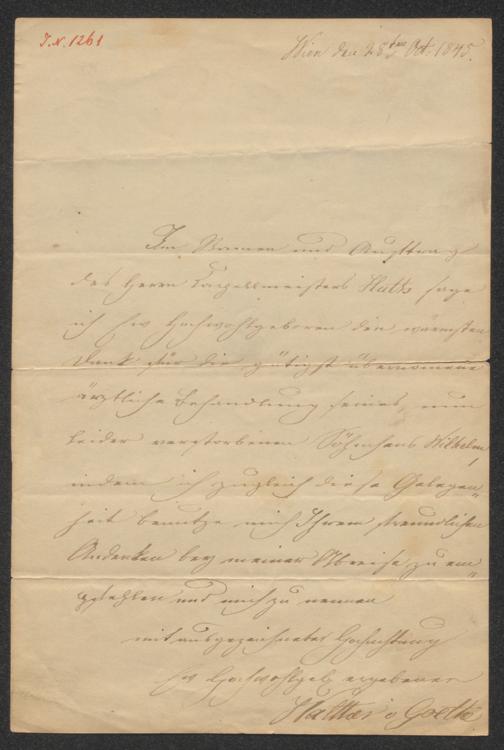 J. N. 1261
Wien den 28ten Oct. 1845.
Im Namen und Auftrag
des Herrn Capellmeisters Stutz sage
ich Ew Hochwohlgeboren den wärmsten
Dank für die gütigst übernomene
ärztliche Behandlung seines, nun
leider verstorbenen Söhnchens Wilhelm,
indem ich zugleich diese Gelegen„
heit benutze mich Ihrem freundlichen
Andenken bey meiner Abreise zu em„
pfehlen und mich zu nennen
mit ausgezeichneter Hochachtung
Ew Hochwohlgeb ergebener
Walther v Goethe